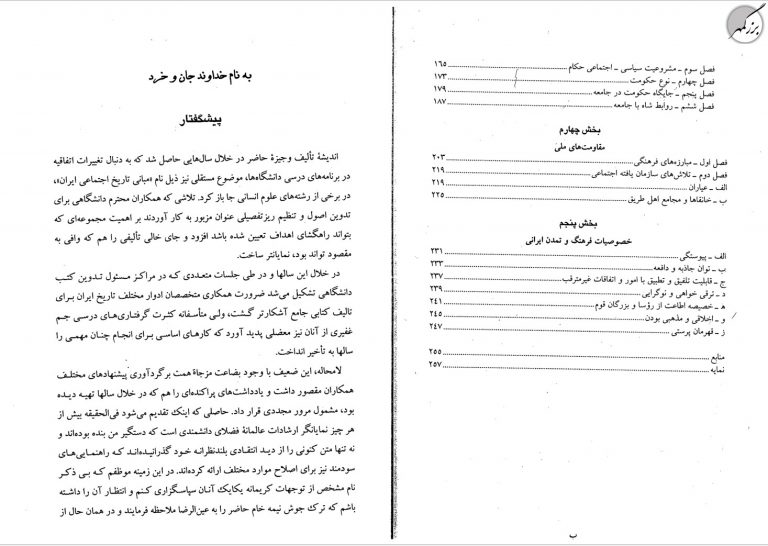 بزرگمهر
فصل سوم ـ مشروعیت سیاسی ـ اجتماعی حکام ۱۶۵
فصل چهارم ـ نوع حکومت ۱۷۳
فصل پنجم ـ جایگاه حکومت در جامعه ۱۷۹
فصل ششم ـ روابط شاه با جامعه ۱۸۷
بخش چهارم
مقاومت‌های ملی
فصل اول ـ مبارزه‌های فرهنگی ۲۰۳
فصل دوم ـ تلاش‌های سازمان یافته اجتماعی ۲۱۹
الف ـ عیاران ۲۱۹
ب ـ خانقاها و مجامع اهل طریق ۲۲۵
بخش پنجم
خصوصیات فرهنگ و تمدن ایرانی
الف ـ پیوستگی ۲۳۱
ب ـ توان جاذبه و دافعه ۲۳۳
ج ـ قابلیت تلفیق و تطبیق با امور و اتفاقات غیرمترقب ۲۳۷
د ـ ترقی خواهی و نوگرایی ۲۳۹
ه ـ خصیصه اطاعت از رؤسا و بزرگان قوم ۲۴۱
و ـ اخلاقی و مذهبی بودن ۲۴۵
ز ـ قهرمان پرستی ۲۴۷
منابع ۲۵۵
نمایه ۲۵۷
ب
به نام خداوند جان و خرد
پیشگفتار
اندیشهٔ تألیف وجیزهٔ حاضر در خلال سال‌هایی حاصل شد که به دنبال تغییرات اتفاقیه
در برنامه‌های درسی دانشگاه‌ها، موضوع مستقلی نیز ذیل نام «مبانی تاریخ اجتماعی ایران»،
در برخی از رشته‌های علوم انسانی جا باز کرد. تلاشی که همکاران محترم دانشگاهی برای
تدوین اصول و تنظیم ریزتفصیلی عنوان مزبور به کار آوردند بر اهمیت مجموعه‌ای که
بتواند راهگشای اهداف تعیین شده باشد افزود و جای خالی تألیفی را هم که وافی به
مقصود تواند بود، نمایانتر ساخت.
در خلال این سالها و در طی جلسات متعددی که در مراکز مسئول تدوین کتب
دانشگاهی تشکیل می‌شد ضرورت همکاری متخصصان ادوار مختلف تاریخ ایران برای
تالیف کتابی جامع آشکارتر گشت، ولی متأسفانه کثرت گرفتاری‌های درسی جم
غفیری از آنان نیز معضلی پدید آورد که کارهای اساسی برای انجام چنان مهمی را
سالها به تأخیر انداخت.
لامحاله، این ضعیف با وجود بضاعت مزجاة همت برگردآوری پیشنهادهای مختلف
همکاران مقصور داشت و یادداشت‌های پراکنده‌ای را هم که در خلال سالها تهیه دیده
بود، مشمول مرور مجددی قرار داد. حاصلی که اینک تقدیم می‌شود فی‌الحقیقه بیش از
هر چیز نمایانگر ارشادات عالمانهٔ فضلای دانشمندی است که دستگیر من بنده بوده‌اند و
نه تنها متن کنونی را از دید انتقادی بلندنظرانه خود گذرانیده‌اند که راهنمایی‌های
سودمند نیز برای اصلاح موارد مختلف ارائه کرده‌اند. در این زمینه موظفم که بی ذکر
نام مشخص از توجهات کریمانه یکایک آنان سپاسگزاری کنم و انتظار آن را داشته
باشم که ترک جوش نیمه خام حاضر را به عین‌الرضا ملاحظه فرمایند و در همان حال از